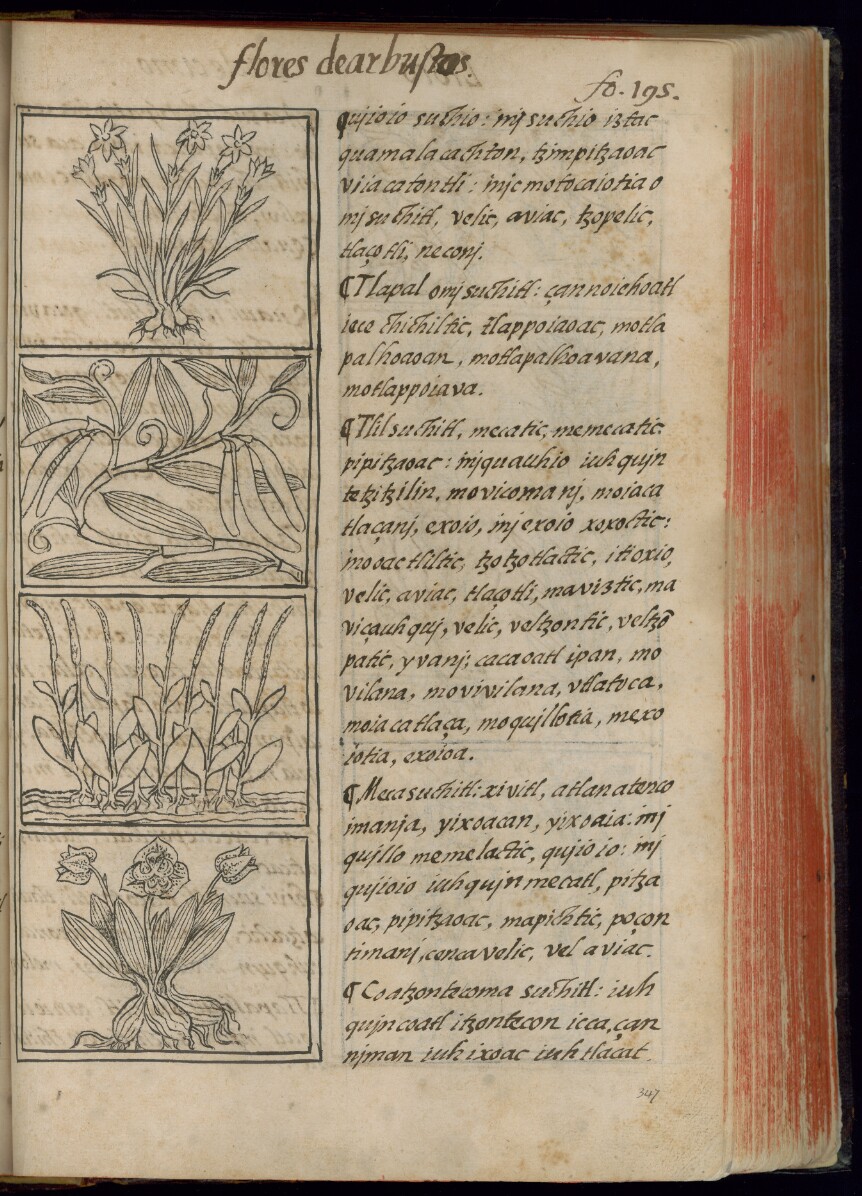 flores de arbustos.
fo. 195.
qujioio suchio: inj suchio iztac
quamalacachton, tzimpitzaoac
viiacatontli: injc motocaiotia o
mjsuchitl, velic, aviac, tzopelic,
tlaçotli, neconj.
¶ Tlapal omjsuchitl: çannoiehoatl
iece chichiltic, tlappoiaoac, motla
palhoaoan, motlapalhoavana,
motlappoiava.
¶ Tlilsuchitl, mecatic, memecatic,
pipitzaoac: injquauhio iuhqujn
tetzitzilin, movicomanj, moiaca
tlaçanj, exoio, inj exoio xoxoctic:
inooac tliltic, tzotzotlactic, itioxio,
velic, aviac, tlaçotli, maviztic, ma
viçauhquj, velic, veltzontic, veltzõ
patic, yvanj: cacaoatl ipan, mo
vilana, movivilana, vtlatoca,
moiacatlaça, moquillotia, mexo
iotia, exoioa.
¶ Mecasuchitl: xivitl, atlan atenco
imanja, yixoacan, yixoaia: inj
quillo memelactic, qujioio: inj
qujioio iuhqujn mecatl, pitza
oac, pipitzaoac, mapichtic, poçon
timanj, cenca velic, vel aviac.
¶ Coatzontecoma suchitl: iuh
qujn coatl itzontecon icca, çan
njman iuh ixoac iuh tlacat.
347